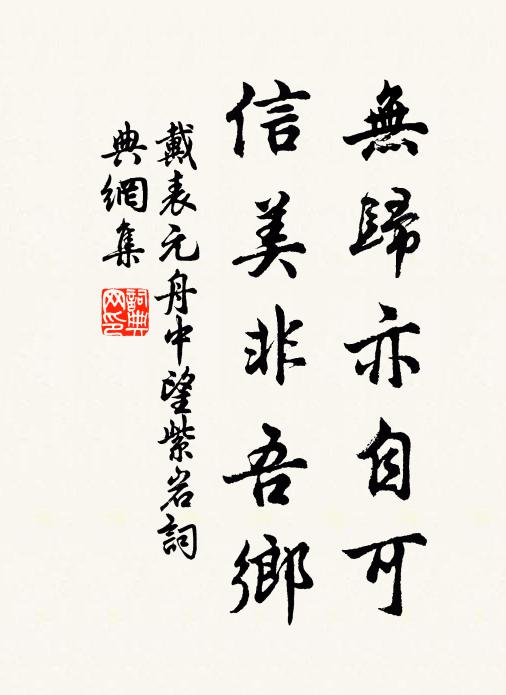 無歸亦自可
信美非吾鄉
戴表元舟中望紫岩詞
典網集
詞典
网印